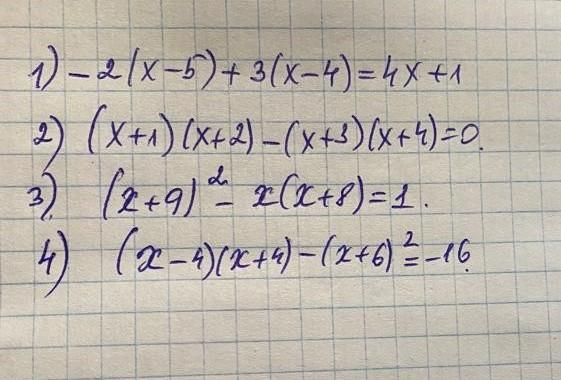 1) -2(x-5)+3(x-4)=4x+1
2) (x+1)(x+2)-(x+3)(x+4)=0.
3) (x+9)²-x(x+8)=1.
4) (x-4)(x+4)-(x+6)²=-16